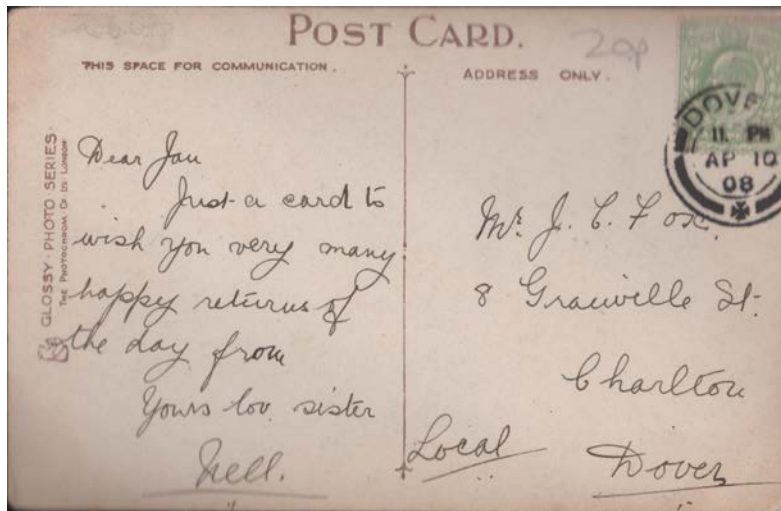 POST CARD.
20p
THIS SPACE FOR COMMUNICATION.
ADDRESS ONLY.
GLOSSY · PHOTO · SERIES ·
THE PHOTOCHROM Co LTD LONDON
Dear Jau
Just a card to
wish you very many
happy returns of
the day from
Yours lov. sister
Nell.
DOVE
11. PM
AP 10
08
Mr. J. C. Fox.
8 Granville St.
Charlton
Local
Dover